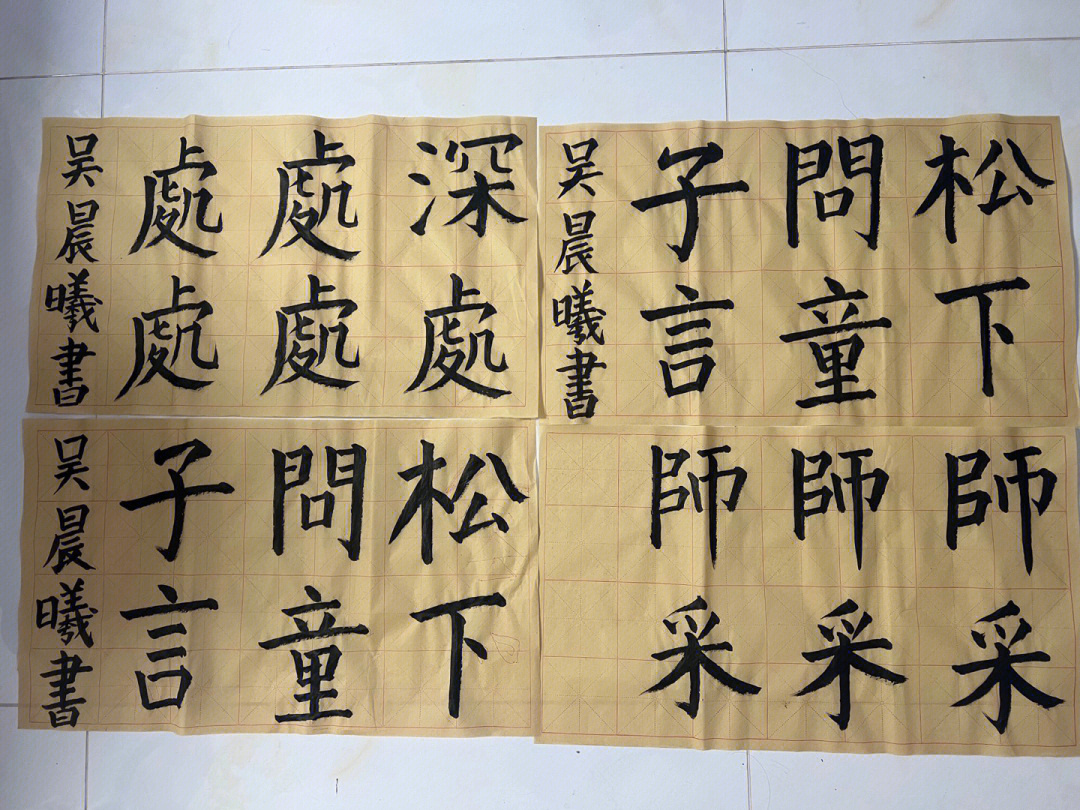 松下
問童
子言
吴晨曦書
深處
處處
處處
吴晨曦書
師采
師采
師采
松下
問童
子言
吴晨曦書